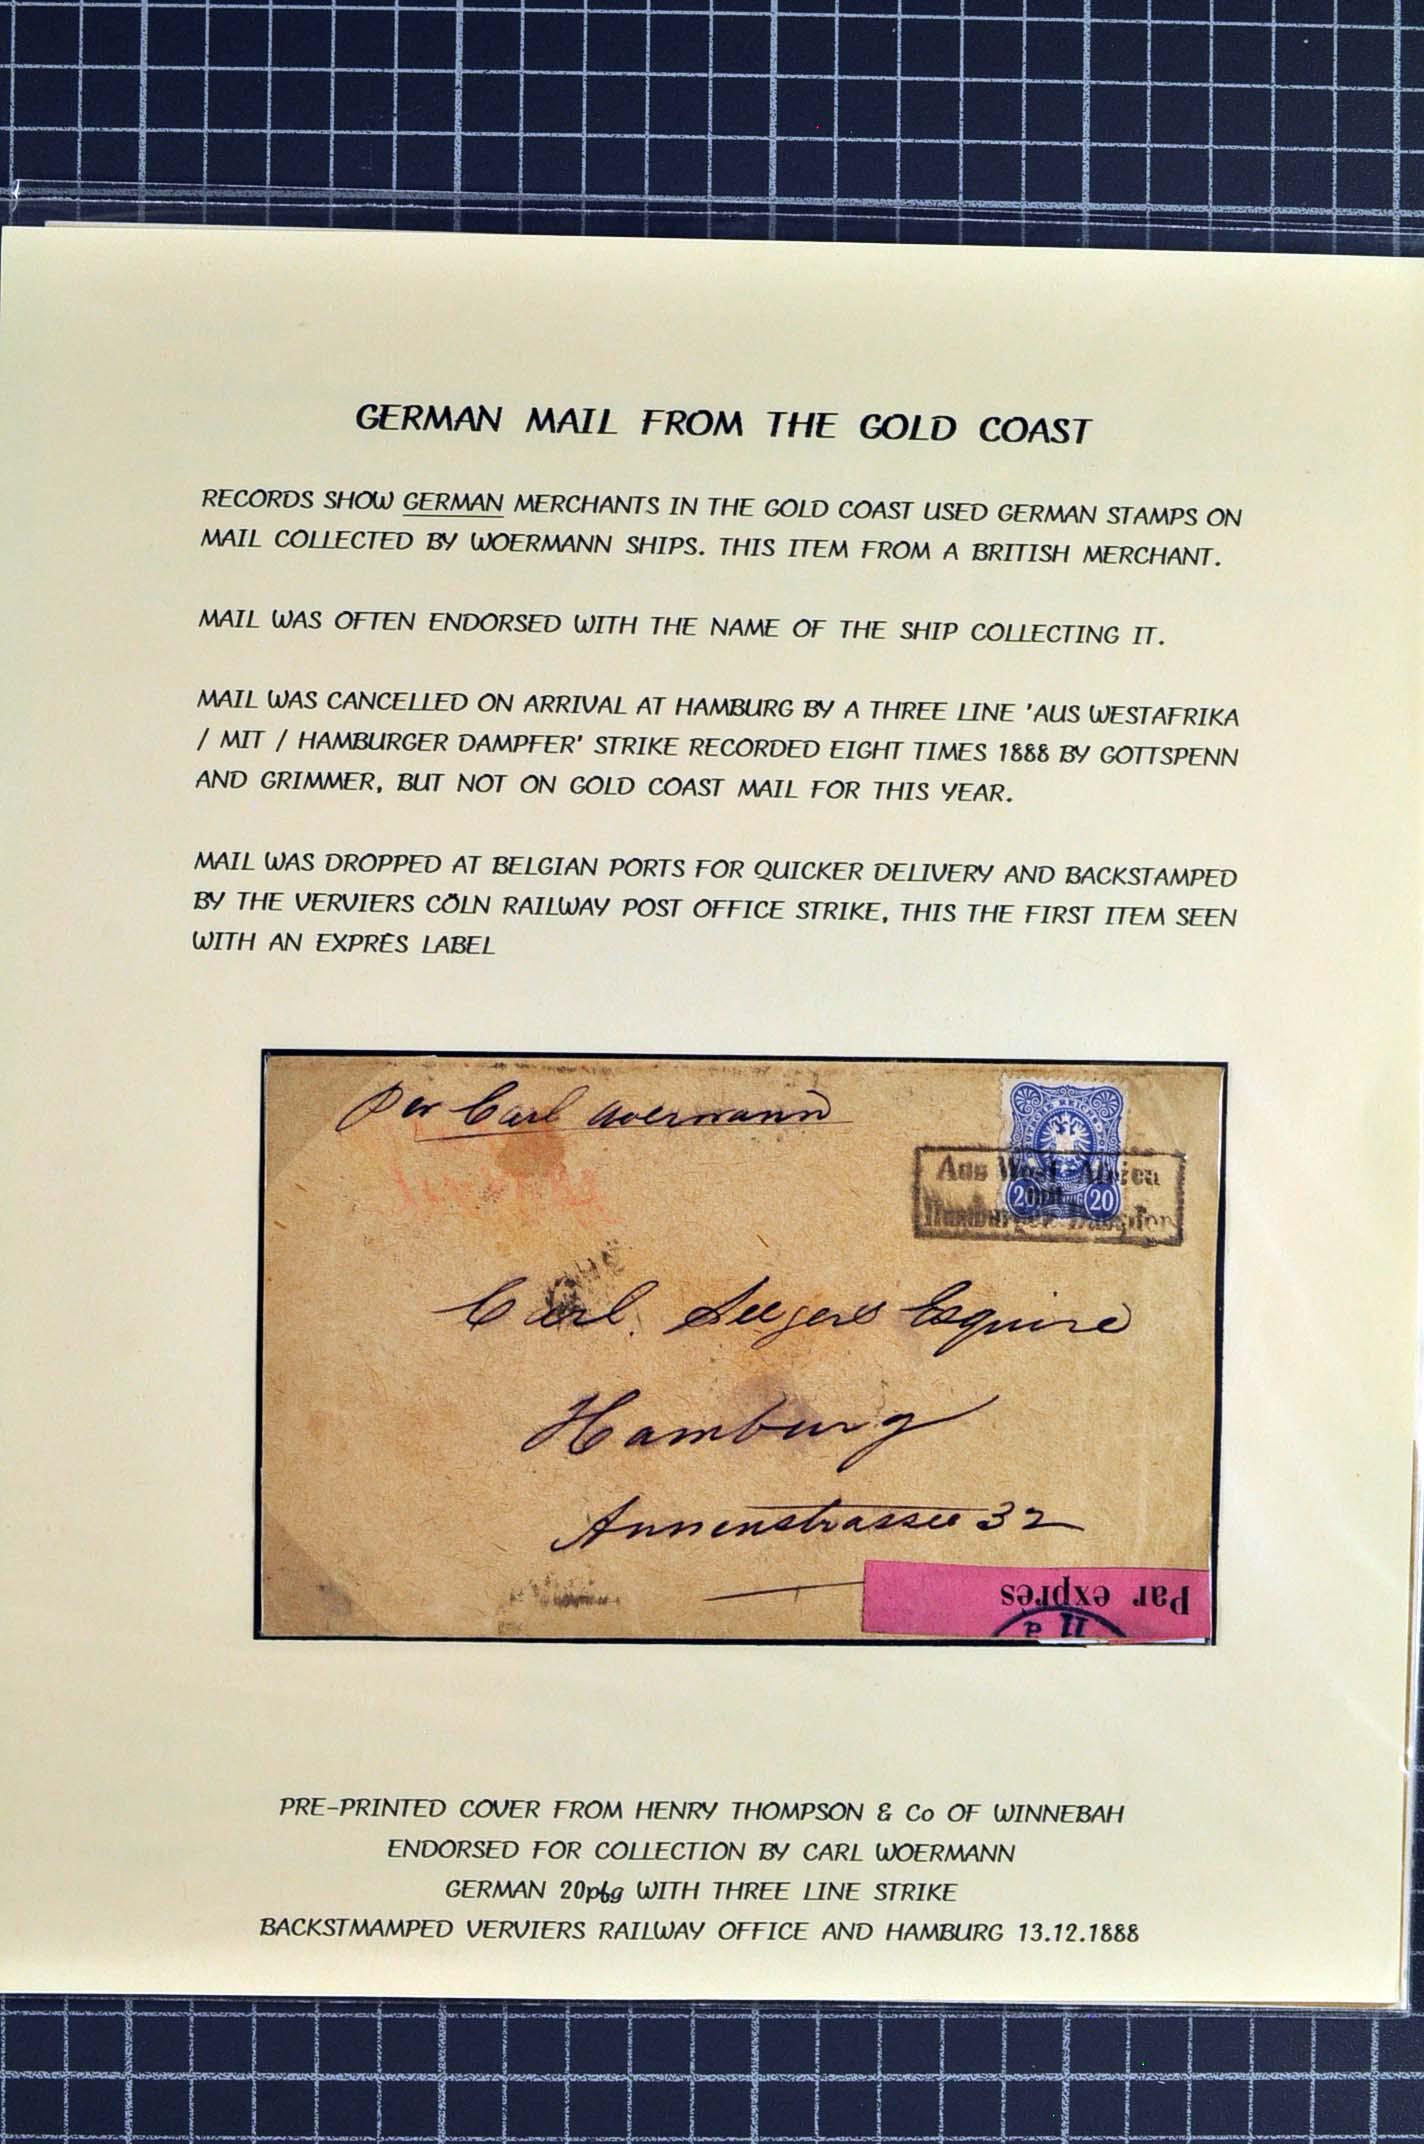 GERMAN MAIL FROM THE GOLD COAST
RECORDS SHOW GERMAN MERCHANTS IN THE GOLD COAST USED GERMAN STAMPS ON
MAIL COLLECTED BY WOERMANN SHIPS. THIS ITEM FROM A BRITISH MERCHANT.
MAIL WAS OFTEN ENDORSED WITH THE NAME OF THE SHIP COLLECTING IT.
MAIL WAS CANCELLED ON ARRIVAL AT HAMBURG BY A THREE LINE 'AUS WESTAFRIKA
/ MIT / HAMBURGER DAMPFER' STRIKE RECORDED EIGHT TIMES 1888 BY GOTTSPENN
AND GRIMMER, BUT NOT ON GOLD COAST MAIL FOR THIS YEAR.
MAIL WAS DROPPED AT BELGIAN PORTS FOR QUICKER DELIVERY AND BACKSTAMPED
BY THE VERVIERS CÖLN RAILWAY POST OFFICE STRIKE, THIS THE FIRST ITEM SEEN
WITH AN EXPRÈS LABEL
Per Carl Woermann
Aus West-Africa
mit
Hamburger Dampfer
20 20
Carl Seegers Esquire
Hamburg
Annenstrasse 32
Par exprès
11 a
PRE-PRINTED COVER FROM HENRY THOMPSON & Co OF WINNEBAH
ENDORSED FOR COLLECTION BY CARL WOERMANN
GERMAN 20pfg WITH THREE LINE STRIKE
BACKSTMAMPED VERVIERS RAILWAY OFFICE AND HAMBURG 13.12.1888